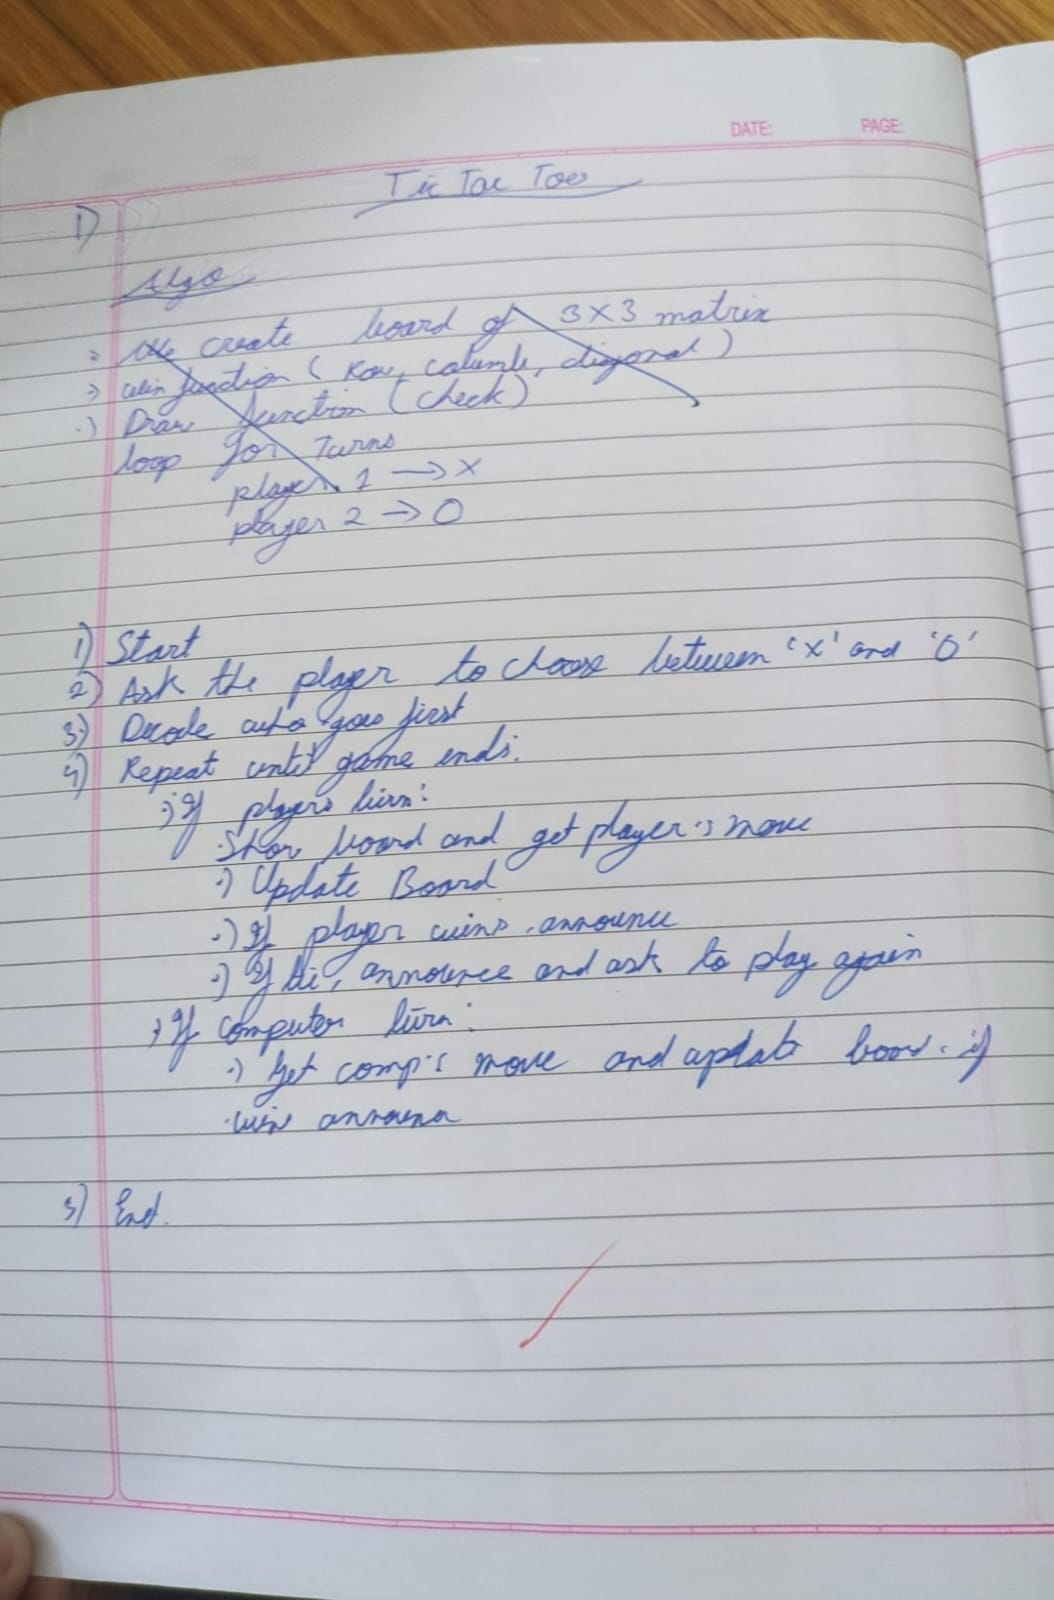 DATE: PAGE:
Tic Tac Toe
1)
Algo
We create board of 3X3 matrix
win function ( Row, column, diagonal )
Draw function (check)
loop for Turns
player 1 → X
player 2 → O
1) Start
2) Ask the player to choose between 'X' and 'O'
3) Decide who goes first
4) Repeat until game ends:
If players turn:
Show board and get player's move
Update Board
If player wins, announce
If tie, announce and ask to play again
If computer turn:
Get comp's move and update board. if
win announce
5) End.